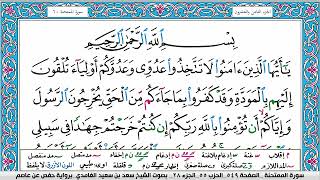 بِسْمِ اللَّهِ الرَّحْمَٰنِ الرَّحِيمِ
يَا أَيُّهَا الَّذِينَ ءَامَنُوا لَا تَتَّخِذُوا عَدُوِّي وَعَدُوَّكُمْ أَوْلِيَاءَ تُلْقُونَ
إِلَيْهِم بِالْمَوَدَّةِ وَقَدْ كَفَرُوا بِمَا جَاءَكُم مِّنَ الْحَقِّ يُخْرِجُونَ الرَّسُولَ
وَإِيَّاكُمْ أَن تُؤْمِنُوا بِاللَّهِ رَبِّكُمْ إِن كُنتُمْ خَرَجْتُمْ جِهَادًا فِي سَبِيلِي
سورة الممتحنة، ص ٥٤٩، الجزء ٢٨، بصوت الشيخ سعد بن سعيد الغامدي، برواية حفص عن عاصم